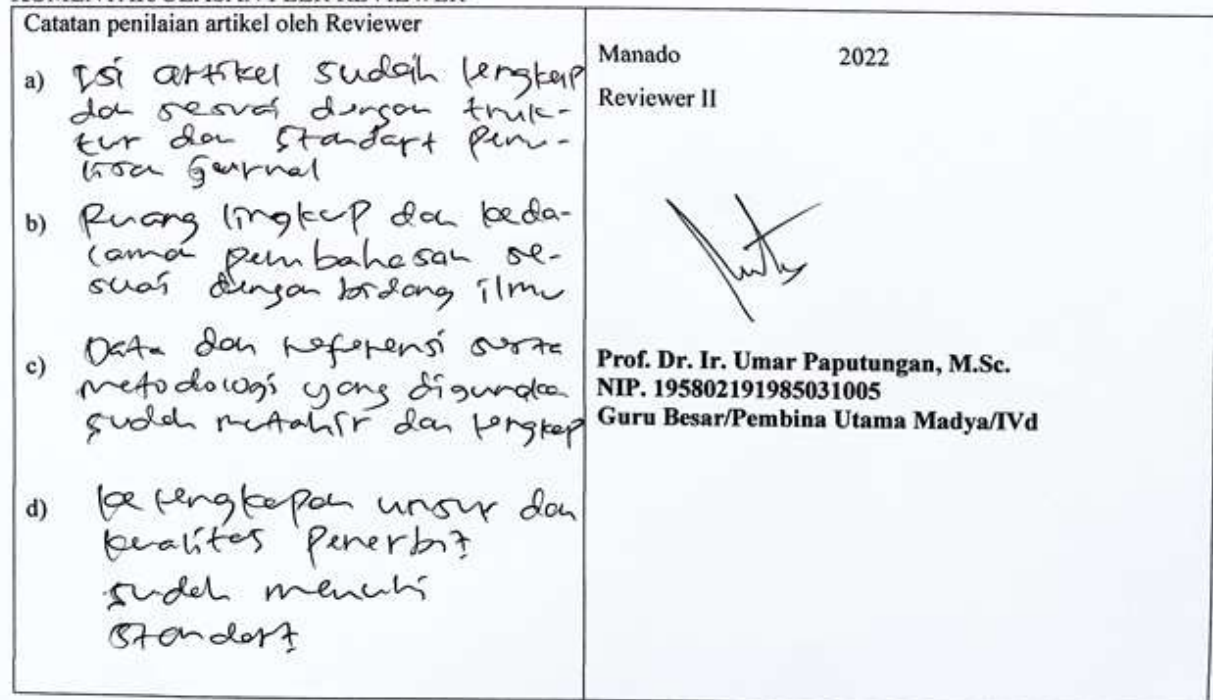 Catatan penilaian artikel oleh Reviewer
a) Isi artikel sudah lengkap
dan sesuai dengan truk-
tur dan Standart penu-
lisan Jurnal
b) Ruang lingkup dan keda-
laman pembahasan se-
suai dengan bidang ilmu
c) Data dan referensi serta
metodologi yang digunakan
sudah mutahir dan lengkap
d) kelengkapan unsur dan
kualitas Penerbit
sudah
standart
Manado 2022
Reviewer II
Prof. Dr. Ir. Umar Paputungan, M.Sc.
NIP. 195802191985031005
Guru Besar/Pembina Utama Madya/IVd